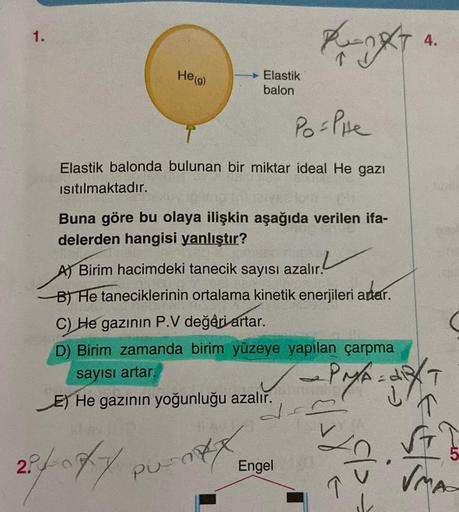 1.
PV=nRT
4.
He(g)
Elastik
balon
P0=PHe
Elastik balonda bulunan bir miktar ideal He gazı
ısıtılmaktadır.
Buna göre bu olaya ilişkin aşağıda verilen ifa-
delerden hangisi yanlıştır?
A) Birim hacimdeki tanecik sayısı azalır.
B) He taneciklerinin ortalama kinetik enerjileri artar.
C) He gazının P.V değeri artar.
D) Birim zamanda birim yüzeye yapılan çarpma
sayısı artar.
PMA=dRT
E) He gazının yoğunluğu azalır.
2.
PV=nRT
Engel
5